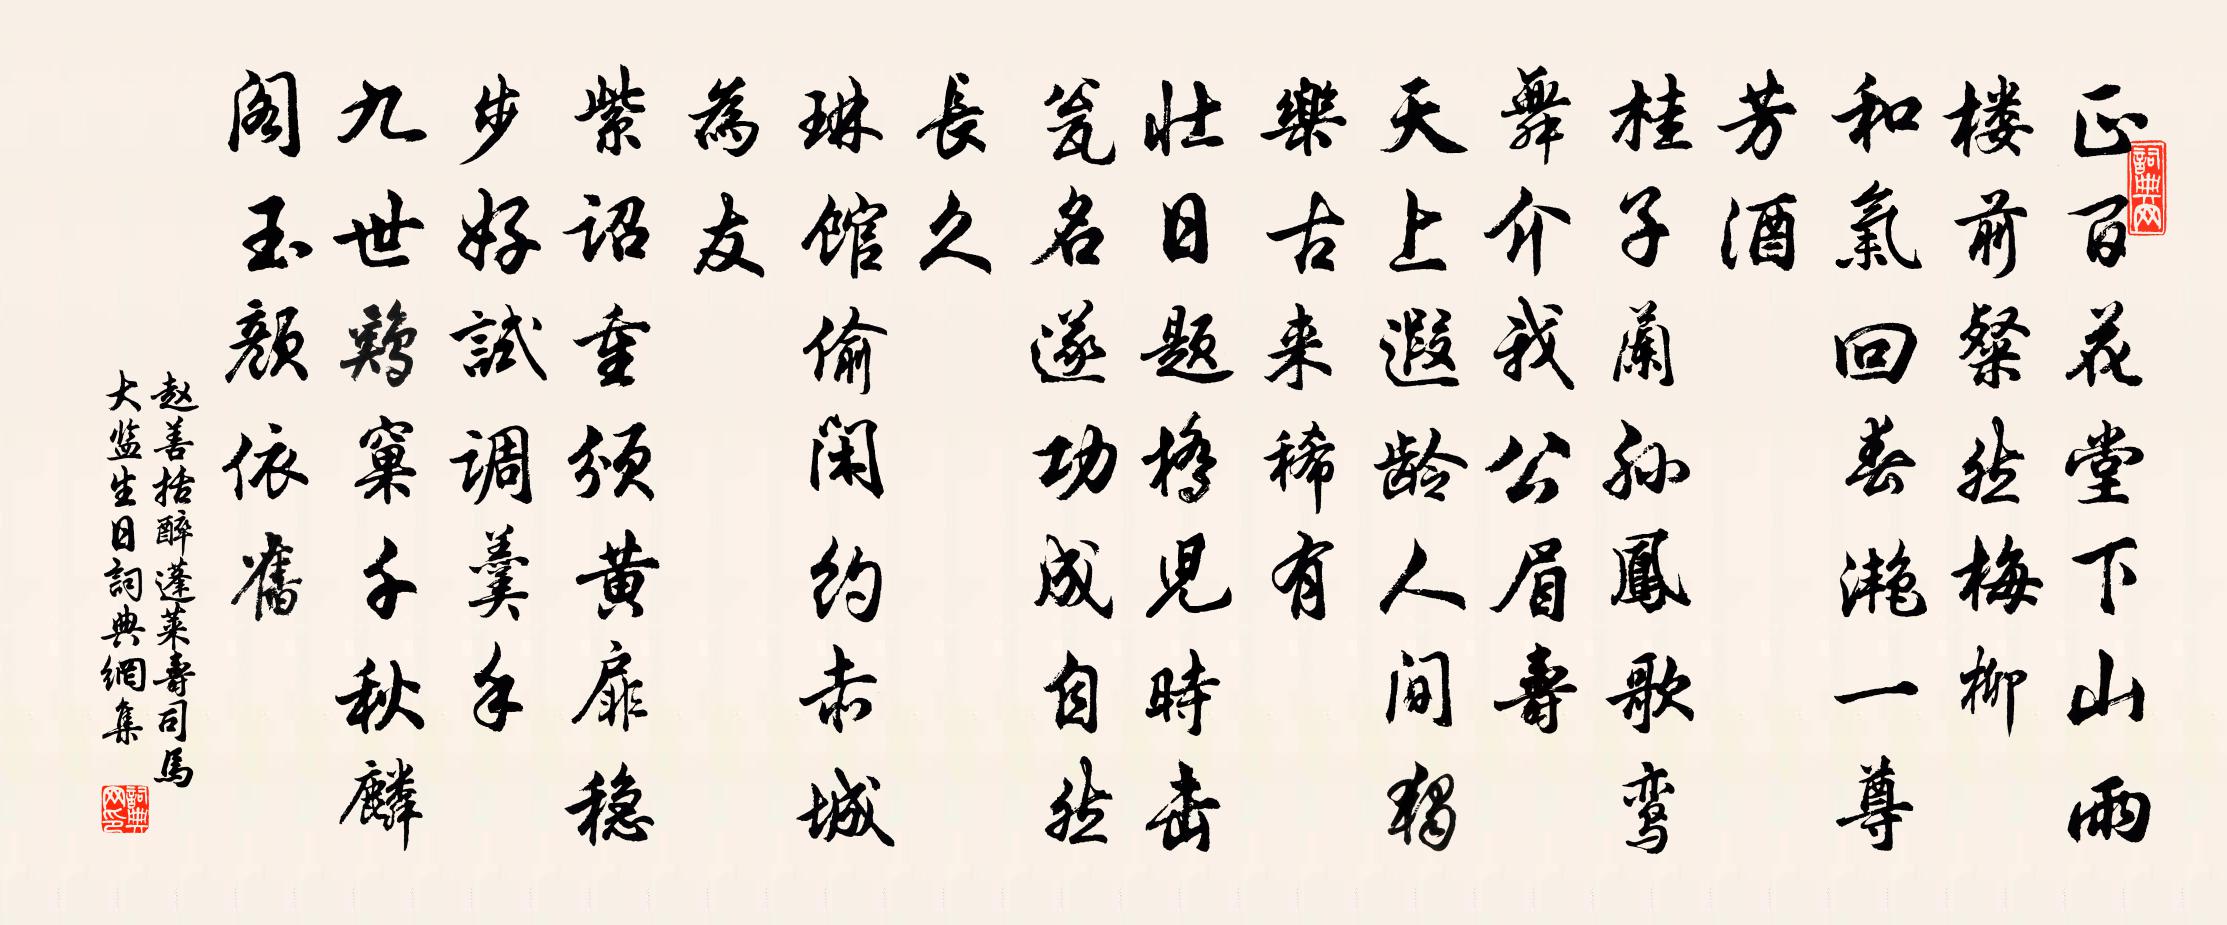 正百花堂下山雨
楼前粲然梅柳
和氣回春滟一尊
芳酒
桂子蘭孙鳳歌鸾
舞介我公眉壽
天上遐龄人间獨
樂古来稀有
壮日题橋児時击
瓮名遂功成自然
長久
琳馆偷闲约赤城
為友
紫诏重颁黄扉稳
步好試调羹手
九世鷄窠千秋麟
阁玉颜依舊
赵善括醉蓬莱壽司馬
大监生日詞典網集
詞典网
詞典网印